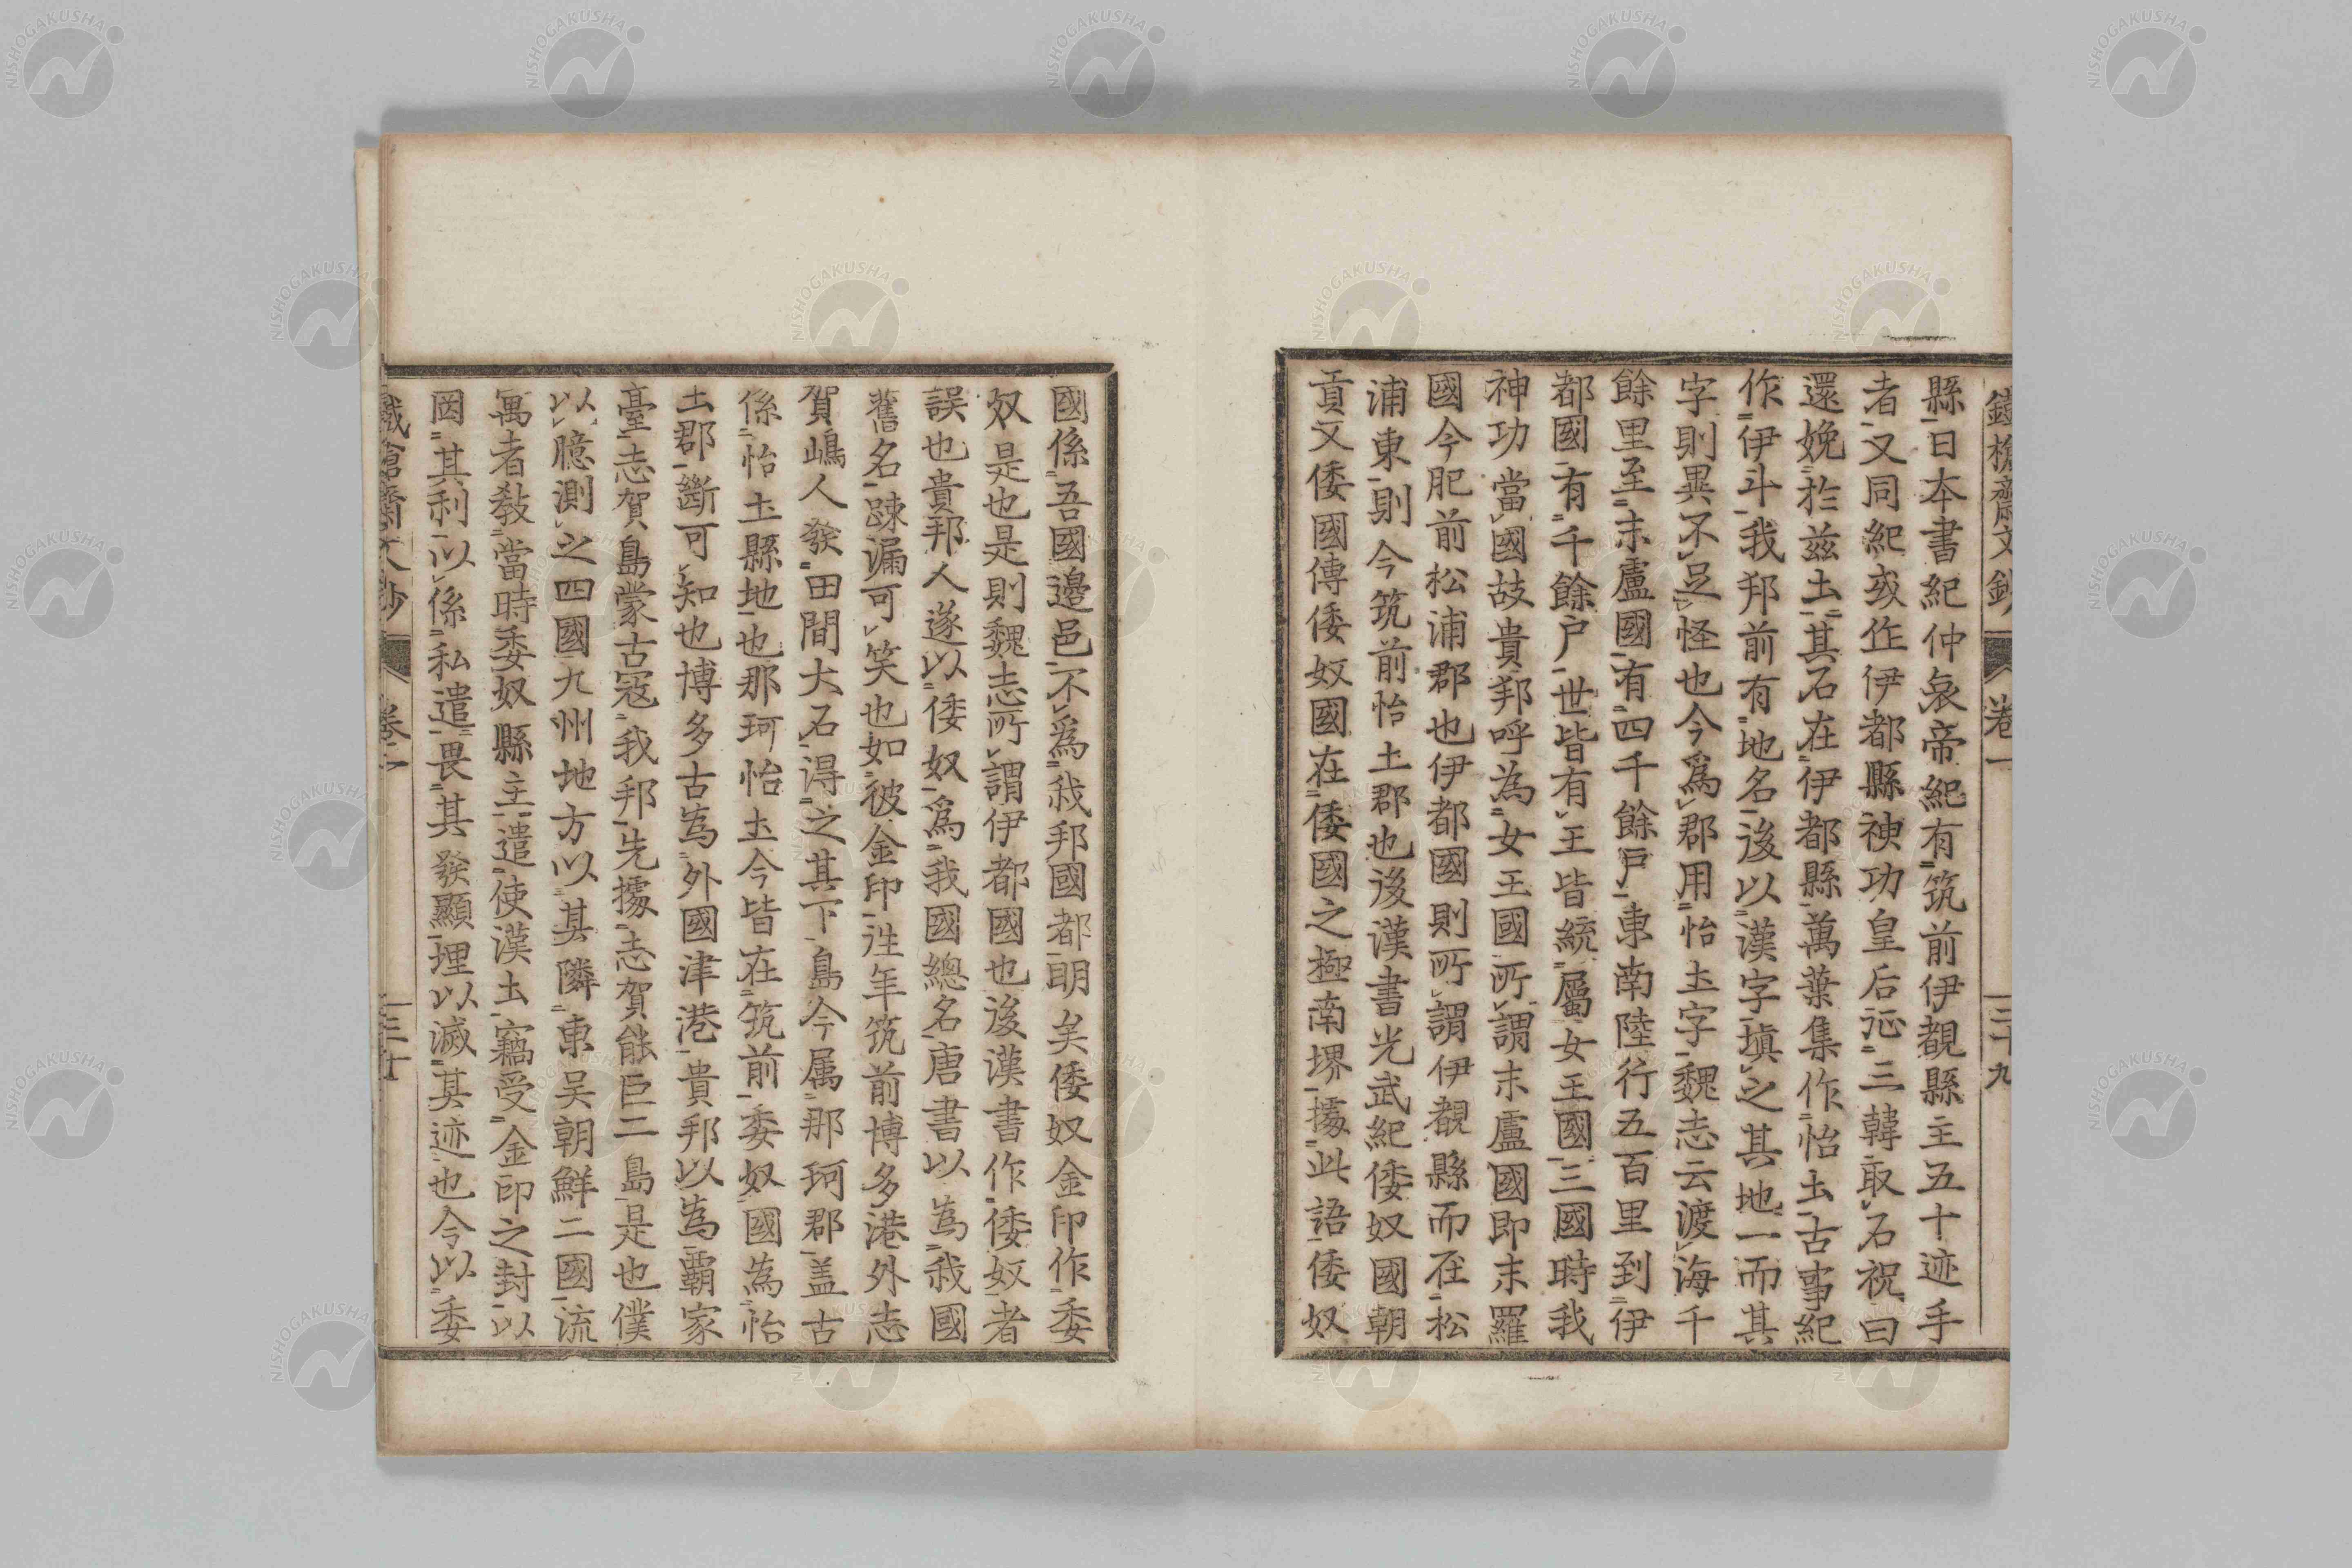 鐵槍齋文鈔 卷一 三十九
縣日本書紀仲哀帝紀有筑前伊覩縣主五十迹手
者又同紀或作伊都縣神功皇后征三韓取石祝曰
還娩於兹土其石在伊都縣萬葉集作怡土古事紀
作伊斗我邦前有地名後以漢字塡之其地一而其
字則異不足怪也今爲郡用怡土字魏志云渡海千
餘里至末盧國有四千餘戸東南陸行五百里到伊
都國有千餘戸世皆有王皆統屬女王國三國時我
神功當國故貴邦呼為女王國所謂末盧國即末羅
國今肥前松浦郡也伊都國則所謂伊覩縣而在松
浦東則今筑前怡土郡也後漢書光武紀倭奴國朝
貢又倭國傳倭奴國在倭國之極南堺據此語倭奴
國係吾國邊邑不爲我邦國都明矣倭奴金印作委
奴是也是則魏志所謂伊都國也後漢書作倭奴者
誤也貴邦人遂以倭奴爲我國總名唐書以為我國
舊名踈漏可笑也如彼金印往年筑前博多港外志
賀嶋人發田間大石得之其下島今属那珂郡盖古
係怡土縣地也那珂怡土今皆在筑前委奴國為怡
土郡斷可知也博多古為外國津港貴邦以為覇家
臺志賀島蒙古寇我邦先據志賀能巨二島是也僕
以臆測之四國九州地方以其隣東吴朝鮮二國流
寓者敎當時委奴縣主遣使漢土竊受金印之封以
罔其利以係私遣畏其發顯埋以滅其迹也今以委
鐵槍齋文鈔 卷一 三十
NISHOGAKUSHA